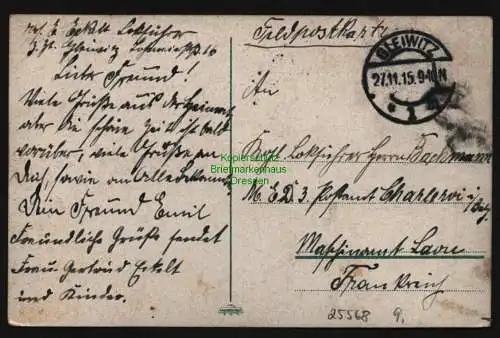 Abs. E. Eckelt Lokführer
z. Zt. Gleiwitz
Lieber Freund!
Viele Grüße aus der Heimat
aber die schöne Zeit ist bald
vorüber, viele Grüße an
Dich, sowie an alle Bekannte
Dein Freund Emil
Freundliche Grüße sendet
Frau Gertrud Eckelt
und Kinder.
Feldpostkarte
GLEIWITZ
27.11.15. 9-10N
1
An
Kgl. Lokführer Herrn Bachmann
M. E. D. 3. Postamt Charleroi
Maschinamt Laon
Frankreich
25568 9,
Kopierschutz
Briefmarkenhaus
Dresden